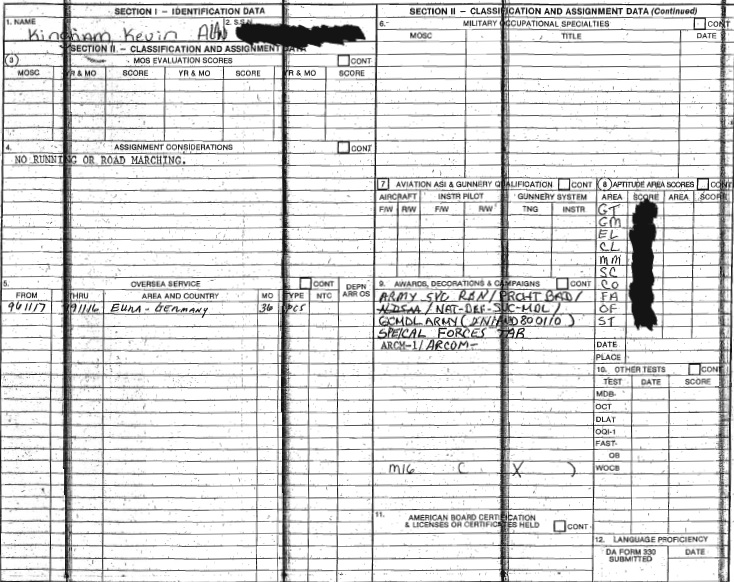 SECTION I - IDENTIFICATION DATA
1. NAME
2. S.S.N.
Kevin
SECTION II. - CLASSIFICATION AND ASSIGNMENT DATA
3
MOS EVALUATION SCORES
CONT
MOSC YR & MO SCORE YR & MO SCORE YR & MO SCORE
4. ASSIGNMENT CONSIDERATIONS
CONT
NO RUNNING OR ROAD MARCHING.
5. OVERSEA SERVICE
CONT
DEPN ARR OS
FROM THRU AREA AND COUNTRY MO TYPE NTC
961117 991116 GERMANY 36 PCS
SECTION II - CLASSIFICATION AND ASSIGNMENT DATA (Continued)
6. MILITARY OCCUPATIONAL SPECIALTIES
CONT
MOSC TITLE DATE
7 AVIATION ASI & GUNNERY QUALIFICATION CONT
AIRCRAFT INSTR PILOT GUNNERY SYSTEM
F/W R/W F/W R/W TNG INSTR
8 APTITUDE AREA SCORES CONT
AREA SCORE AREA SCORE
GT
GM
EL
CL
MM
SC
CO
FA
OF
ST
DATE
PLACE
9. AWARDS, DECORATIONS & CAMPAIGNS CONT
ARMY SVC RBN/
NDSM / NAT-DEF-SVC-MDL/
GCMDL ARMY
SPEICAL FORCES TAB
ARCM-1/ARCOM-
M16 ( X )
10. OTHER TESTS CONT
TEST DATE SCORE
MDB-
OCT
DLAT
OQI-1
FAST-
OB
WOCB
11. AMERICAN BOARD CERTIFICATION
& LICENSES OR CERTIFICATES HELD CONT
12. LANGUAGE PROFICIENCY
DA FORM 330 DATE
SUBMITTED